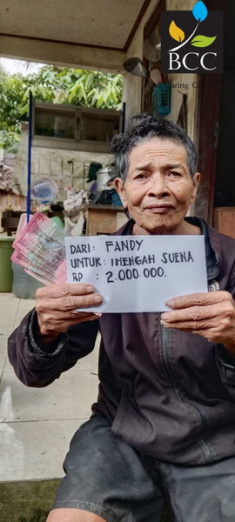 BCC
DARI: FANDY
UNTUK: IMENGAH SUENA
RP : 2.000.000.